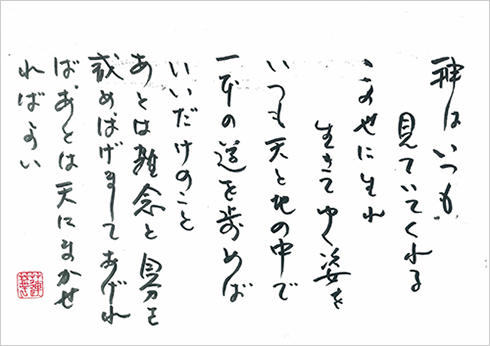 神はいつも
見ていてくれる
この世に生れ
生きてゆく姿を
いつも天と地の中で
一本の道を歩めば
いいだけのこと
あとは雑念と自分を
戒めはげましてあげれ
ば、あとは天にまかせ
ればよい